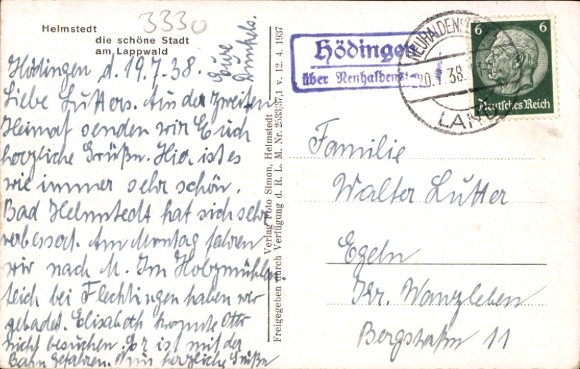 Helmstedt
die schöne Stadt
am Lappwald
3330
Hödingen d. 19.7.38.
Liebe Lutters. Aus der zweiten
Heimat senden wir Euch
herzliche Grüße. Hier ist es
wie immer sehr schön.
Bad Helmstedt hat sich sehr
verbessert. Am Montag fahren
wir nach M. Im Holzmühlen-
teich bei Flechtingen haben wir
gebadet. Elisabeth konnte Otto
nicht besuchen. Er ist mit der
Bahn gefahren. Nun herzliche Grüße
Eure
Verlag Foto Simon, Helmstedt
Freigegeben durch Verfügung d. R. L. M. Nr. v. 12. 4. 1937
Hödingen
über Neuhaldensleben
NEUHALDENS
20.7.38.
LAND
6 6
Deutsches Reich
Familie
Walter Lutter
Egeln
Kr. Wanzleben
Bergstraße 11